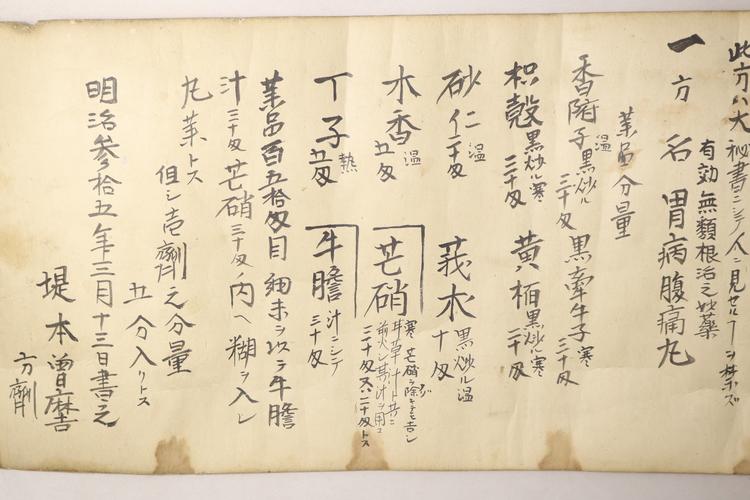 此方ハ大秘書ニシテ人ニ見セルヿヲ禁ズ
有効無類根治之妙薬
一方名 胃病腹痛丸
薬品分量
香附子 温 黒炒ル 三十匁 黒牽牛子 寒 三十匁
枳殻 黒炒ル 寒 三十匁 黄栢 黒炒ル 寒 二十匁
砂仁 温 二十匁 莪朮 黒炒ル 温 十匁
木香 温 五匁 芒硝 寒
芒硝ヲ除キ
三十匁
丁子 熱 五匁 牛膽 汁ニシテ 三十匁
薬品百五拾匁目細末ヲ以テ牛膽
汁 三十匁 芒硝 三十匁 ノ内ヘ糊ヲ入レ
丸薬トス
但シ壱劑之分量
五分入リトス
明治参拾五年三月十三日書之
堤本曽麿
方劑